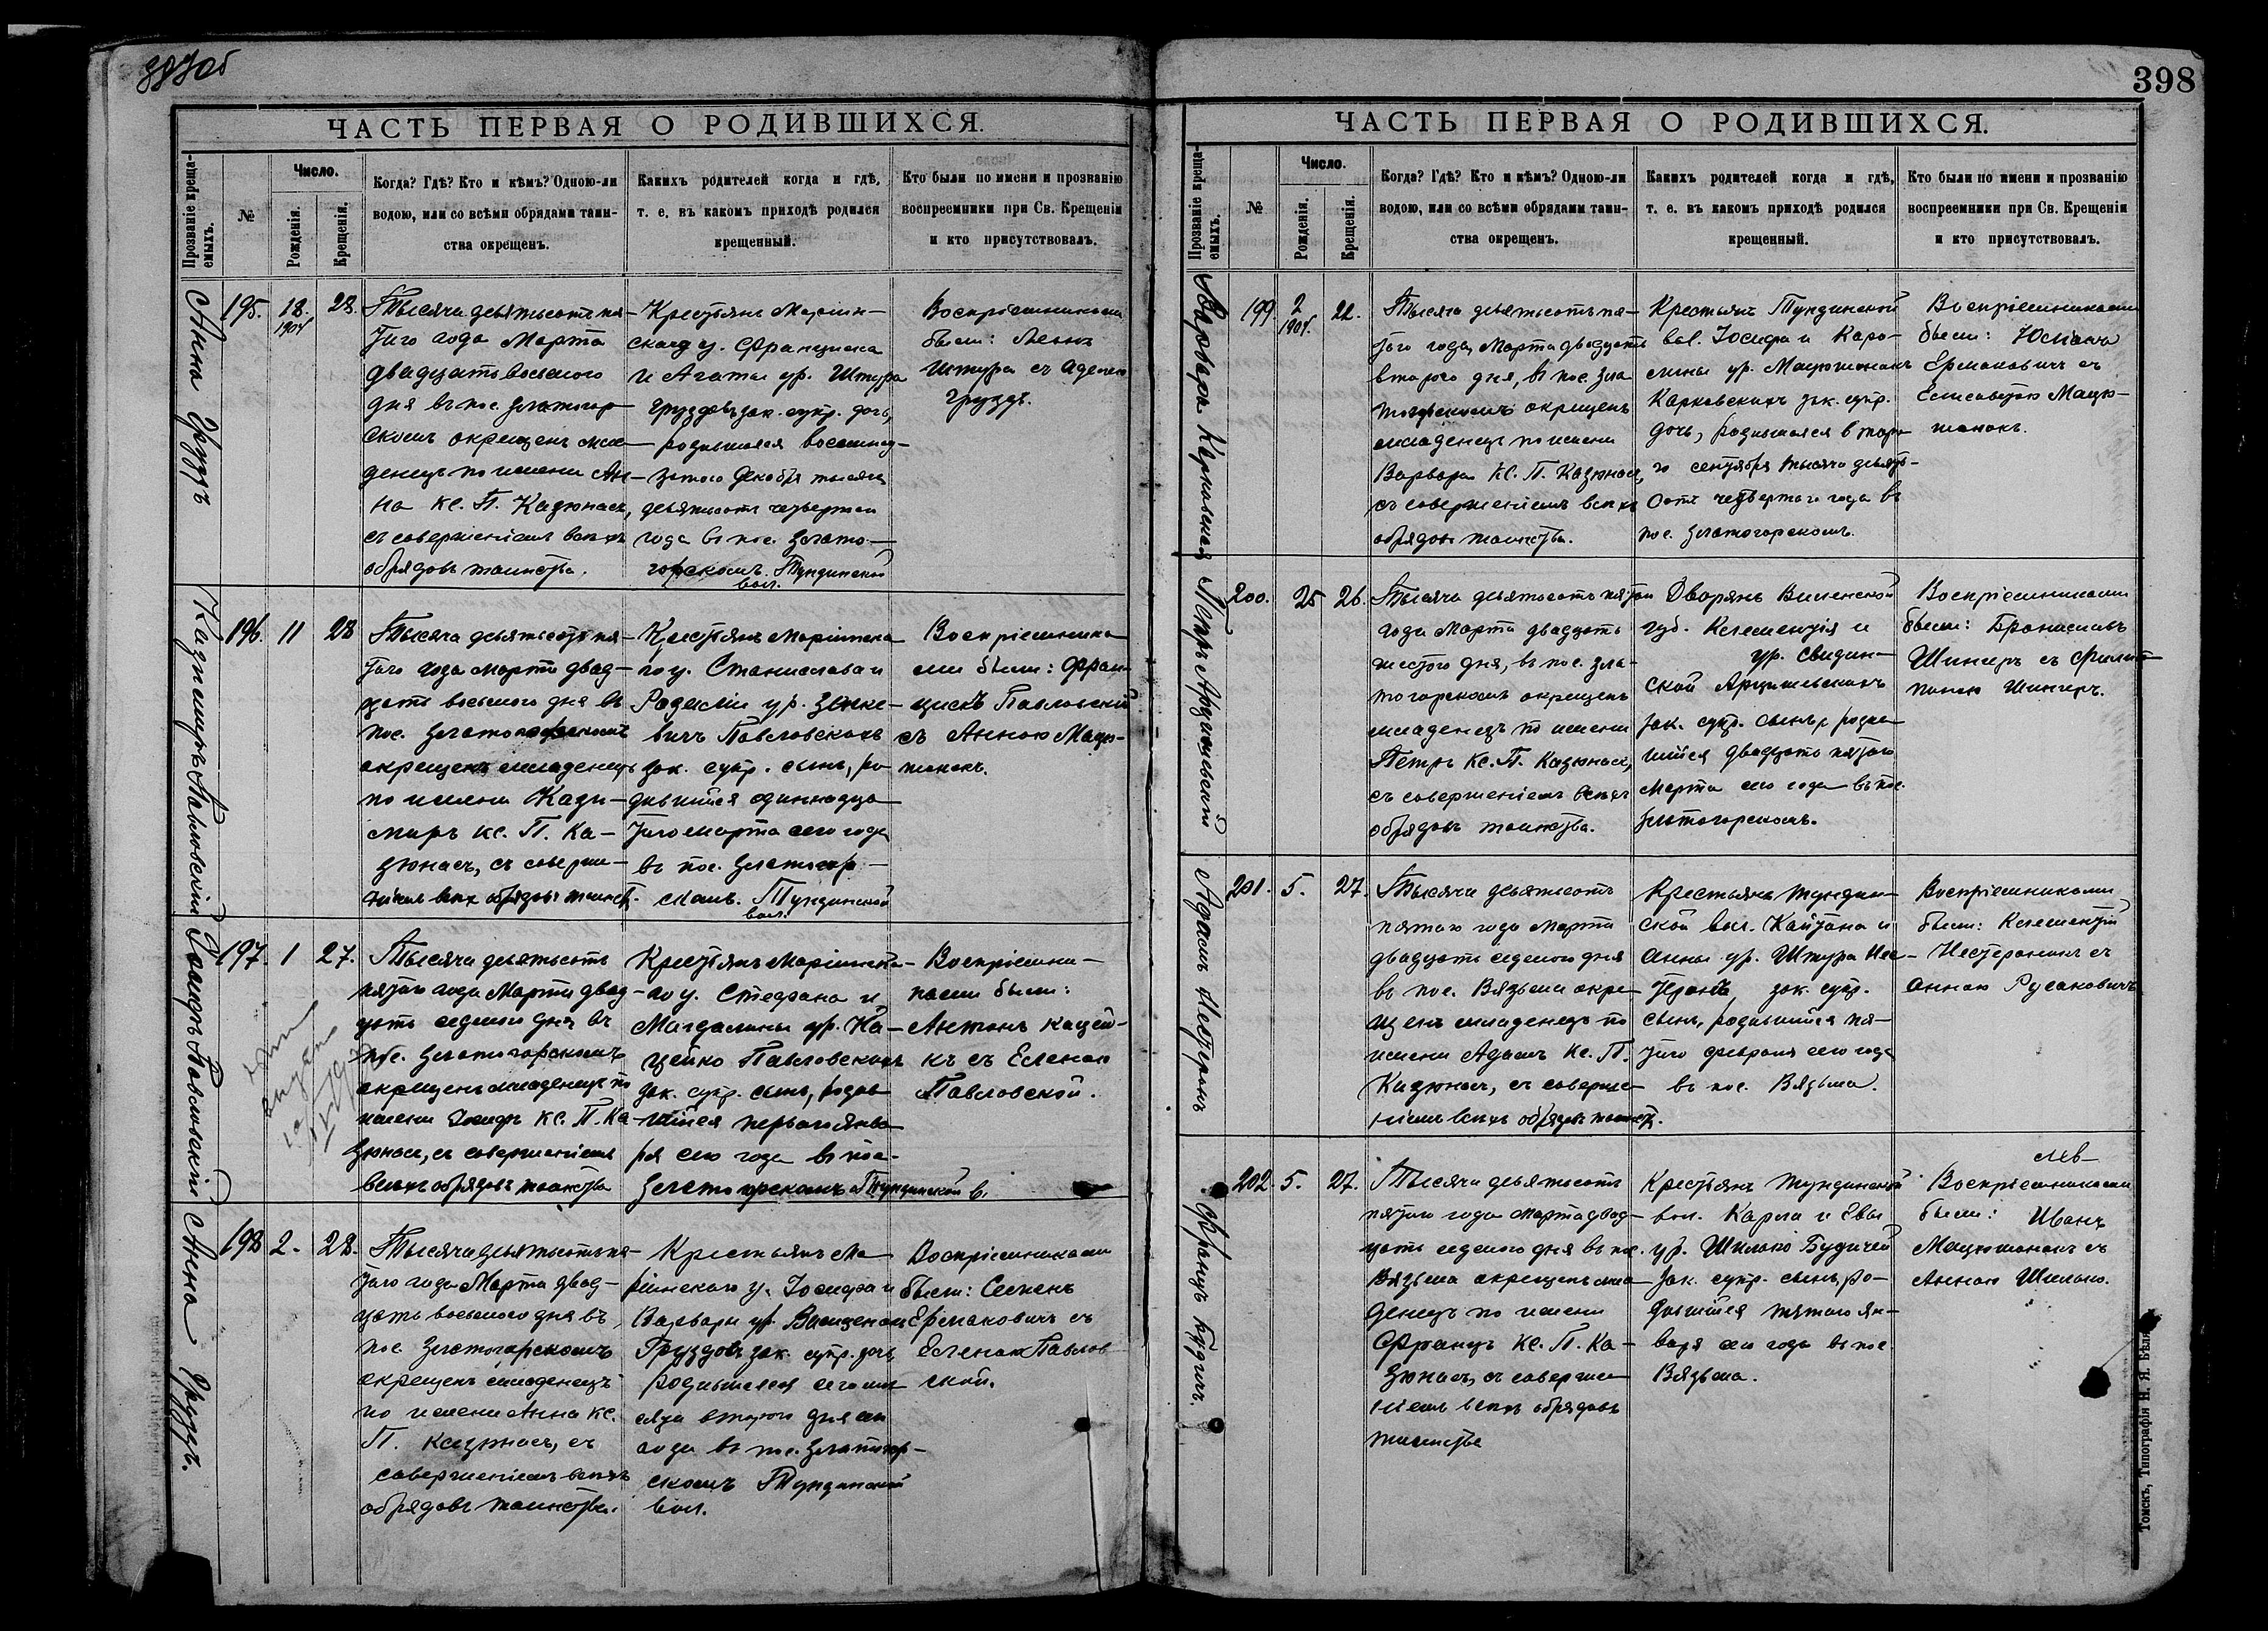 ЧАСТЬ ПЕРВАЯ О РОДИВШИХСЯ.
Прозваніе креща-
емыхъ.
№
Число.
Рожденія.
Крещенія.
Когда? Гдѣ? Кто и кѣмъ? Одною-ли
водою, или со всѣми обрядами таин-
ства окрещенъ.
Какихъ родителей когда и гдѣ,
т. е. въ какомъ приходѣ родился
крещенный.
Кто были по имени и прозванію
воспреемники при Св. Крещеніи
и кто присутствовалъ.
Анна Груздъ
195. 18. 1904 28.
Тысяча девятьсотъ пя-
таго года Марта
двадцать восьмого
дня въ пос. Златогор-
скомъ окрещенъ мла-
денецъ по имени Ан-
на Кс. П. Казюнасъ,
съ совершеніемъ всѣхъ
обрядовъ таинства.
Крестьянъ Маріин-
скаго у. Франциска
и Агаты ур. Штура
Груздовъ зак. супр. дочь,
родившаяся восемнад-
цатого Декабря тысяча
девятьсотъ четвертаго
года въ пос. Злато-
горскомъ. Тундинской
вол.
Воспріемниками
были:
Штура съ
Груздъ.
Казимиръ Павловскій
196. 11 28
Тысяча девятьсотъ пя-
таго года Марта двад-
цать восьмого дня въ
пос. Златогорскомъ
окрещенъ младенецъ
по имени Кази-
миръ Кс. П. Ка-
зюнасъ, съ соверше-
ніемъ всѣхъ обрядовъ таинст.
Крестьянъ Маріинска-
го у. Станислава и
ур.
Павловскихъ
зак. супр. сынъ, ро-
дившійся одиннадца-
таго марта сего года
въ пос. Златогор-
скомъ. Тундинской
вол.
Воспріемника-
ми были: Фран-
цискъ Павловскій
съ Анною Мацю-
танокъ.
Іосифъ Павловскій
197. 1 27.
Тысяча девятьсотъ
пятаго года Марта двад-
цать седьмого дня въ
пос. Златогорскомъ
окрещенъ младенецъ по
имени Іосифъ Кс. П. Ка-
зюнасъ, съ совершеніемъ
всѣхъ обрядовъ таинства
Крестьянъ Маріинска-
го у. Стефана и
Магдалины ур. Ка-
цейко Павловскихъ
зак. супр. сынъ, родив-
шійся перваго Янва-
ря сего года въ пос.
Златогорскомъ Тундинской в.
Воспріемни-
ками были:
Антонъ Кацей-
къ съ Еленою
Павловской.
Анна Груздъ.
198 2. 28.
Тысяча девятьсотъ пя-
таго года Марта двад-
цать восьмого дня въ
пос Златогорскомъ
окрещенъ младенецъ
по имени Анна Кс.
П. Казюнасъ, съ
совершеніемъ всѣхъ
обрядовъ таинства.
Крестьянъ Ма-
ріинскаго у. Іосифа и
Варвары ур.
Груздовъ зак. супр. дочь,
родившаяся сего мѣ-
сяца второго дня сего
года въ пос. Златогор-
скомъ Тундинской
вол.
Воспріемниками
были: Семенъ
Ермаковичъ съ
Еленою Павлов-
ской.
398
ЧАСТЬ ПЕРВАЯ О РОДИВШИХСЯ.
Прозваніе креща-
емыхъ.
№
Число.
Рожденія.
Крещенія.
Когда? Гдѣ? Кто и кѣмъ? Одною-ли
водою, или со всѣми обрядами таин-
ства окрещенъ.
Какихъ родителей когда и гдѣ,
т. е. въ какомъ приходѣ родился
крещенный.
Кто были по имени и прозванію
воспреемники при Св. Крещеніи
и кто присутствовалъ.
Варвара Карковская
199 2 22.
Тысяча девятьсотъ пя-
таго года, Марта двадцать
второго дня, въ пос. Зла-
тогорскомъ окрещенъ
младенецъ по имени
Варвара Кс. П. Казюнасъ,
съ совершеніемъ всѣхъ
обрядовъ таинства.
Крестьянъ Тундинской
вол. Іосифа и Каро-
лины ур. Мацютанокъ
Карковскихъ зак. супр.
дочь, родившаяся второ-
го сентября тысяча девять-
сотъ четвертаго года въ
пос. Златогорскомъ.
Воспріемниками
были:
Ермаковичъ съ
Елисаветою Мацю-
танокъ.
Петръ Арцишевскій
200. 25 26.
Тысяча девятьсотъ пятаго
года Марта двадцать
шестого дня, въ пос. Зла-
тогорскомъ окрещенъ
младенецъ по имени
Петръ Кс. П. Казюнасъ,
съ совершеніемъ всѣхъ
обрядовъ таинства.
Дворянъ Виленской
губ. Клементія и
ур. Свидин-
ской Арцишевскихъ
зак. супр. сынъ, родив-
шійся двадцать пятаго
Марта сего года въ пос.
Златогорскомъ.
Воспріемниками
были: Брониславъ
Шингеръ съ Филип-
пиною Шингеръ.
Адамъ Нестеронъ
201. 5. 27.
Тысяча девятьсотъ
пятаго года Марта
двадцать седьмого дня
въ пос. Вязьма окре-
щенъ младенецъ по
имени Адамъ Кс. П.
Казюнасъ, съ соверше-
ніемъ всѣхъ обрядовъ таинст.
Крестьянъ Тундин-
ской вол. Каитана и
Анны ур. Штура Нес-
теронъ, зак. супр.
сынъ, родившійся пя-
таго февраля сего года
въ пос. Вязьма.
Воспріемниками
были: Клементій
Нестеронокъ съ
Анною Русаковичъ
Францъ Будичъ.
202 5. 27.
Тысяча девятьсотъ
пятаго года Марта двад-
цать седьмого дня въ пос.
Вязьма окрещенъ мла-
денецъ по имени
Францъ Кс. П. Ка-
зюнасъ, съ соверше-
ніемъ всѣхъ обрядовъ
таинства
Крестьянъ Тундинской
вол. Карла и Евы
ур. Шилако Будичей
зак. супр. сынъ, ро-
дившійся пятаго Ян-
варя сего года въ пос.
Вязьма.
Воспріемниками
были: Иванъ
Мацютанокъ съ
Анною Шилако.
Томскъ, Типографія Н. Я. Бѣля